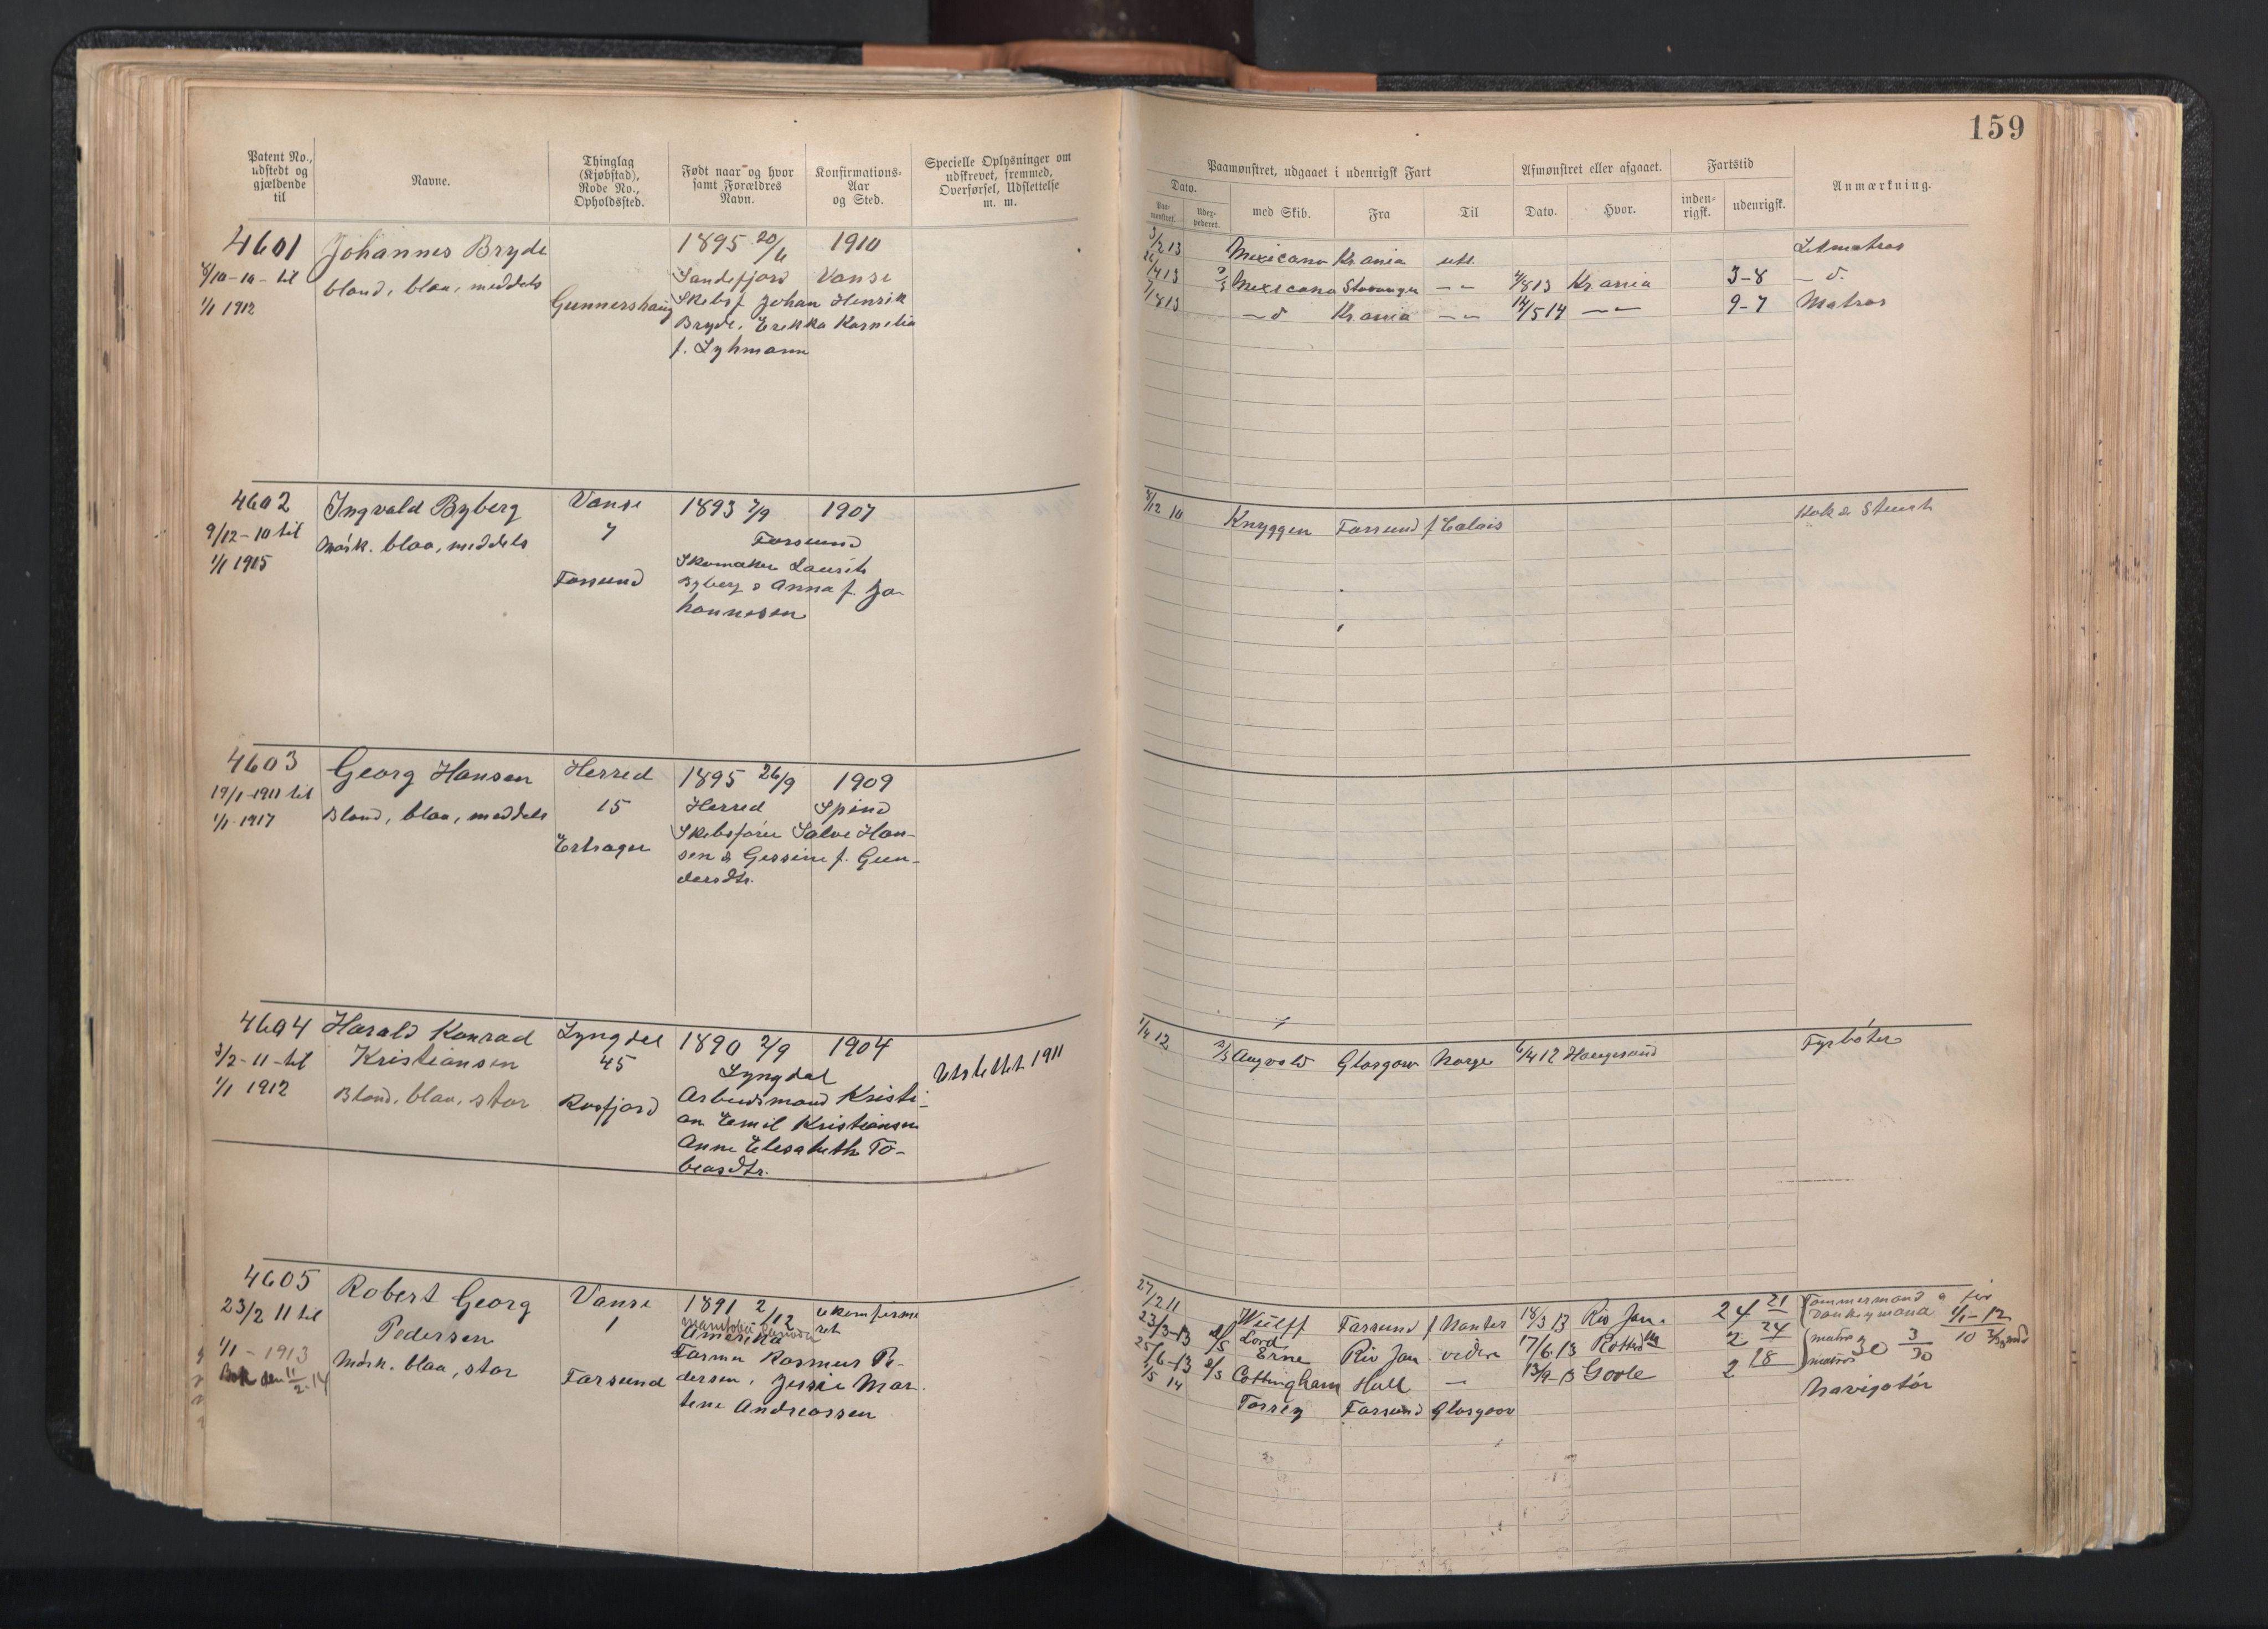 159
Patent No., udstedt og gjældende til
Navne.
Thinglag (Kjøbstad), Rode No., Opholdssted.
Født naar og hvor samt Forældres Navn.
Konfirmations-Aar og Sted.
Specielle Oplysninger om udskrevet, fremmed, Overførsel, Udslettelse m. m.
Paamønstret, udgaaet i udenrigsk Fart
Dato.
Paa-mønstret.
Udex-pederet.
med Skib.
Fra
Til
Afmønstret eller afgaaet.
Dato.
Hvor.
Fartstid
inden-rigsk.
udenrigsk.
Anmærkning.
4601
8/10-10- til
1/1 1912
Johannes Bryde
blond, blaa, meddels
Gunnershaug
1895 20/6 1910
Sandefjord Vanse
Skibsf Johan Henrik
Bryde, Erikka Kornelia
f. Lyhmann
3/2 13 Mexicano Kr.ania utl. Letmatros
14 13 2/5 Mexicano Stavanger -"- 4/8 13 Kr.ania 3-8 - d.
7/8 13 - d Kr.ania -"- 14/5 14 -"- 9-7 Matros
4602
9/12-10 til
1/1 1915
Ingvald Byberg
Mørk. blaa, meddels
Vanse
7
Farsund
1893 7/9 1907
Farsund
Skomaker Laurits
Byberg & Anna f. Jo-
hannesen
9/12 10 Knyggen Farsund f Calais Kok & Stuert
4603
19/1-1911 til
1/1-1917
Georg Hansen
Blond, blaa, meddels
Herred
15
Ertrager
1895 26/9 1909
Herred Spind
Skibsfører Salve Han-
sen & Gessine f. Gun-
dersdtr.
4604
3/2-11-til
1/1 1912
Harald Konrad
Kristiansen
Blond, blaa, stor
Lyngdal
45
Rosfjord
1890 2/9 1904
Lyngdal
Arbeidsmand Kristi-
an Emil Kristiansen
Anne Elisabeth To-
biasdtr.
Utslettet 1911
1/4 12 2/3 Augvald Glasgow Norge 6/4 12 Haugesund Fyrbøter
4605
23/2 11 til
1/1 - 1913
Bok den 11/2-14
Robert Georg
Pedersen
Mørk. blaa, stor
Vanse
1
Farsund
1891 2/12 ukonfirme
ret
Manitoba Canada
Amerika
Farmer Rasmus Pe-
dersen, Jessie Mar-
tene Andreassen
27/2 11 Wulff Farsund f Nantes 18/3 13 Rio Jan. 24 21 Tømmermand &
donkeymand
23/3-13 2/5 Lord
Erne Rio Jan. videre 17/6 13 Rotterd 2 24 matros
25/6-13 2/5 Cottingham Hull - 13/9-13 Goole 2 18 matros
1/5 14 Torrey Farsund Glasgow Navigatør